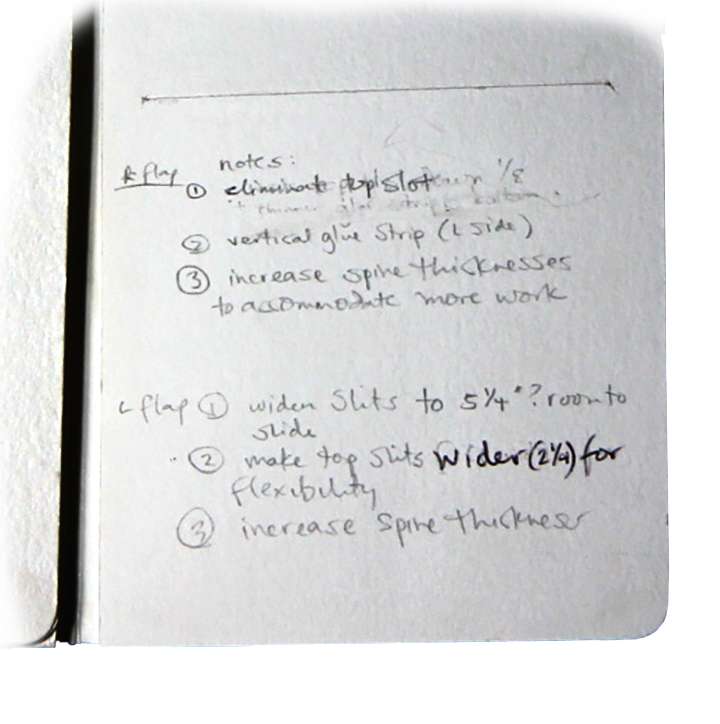 notes:
R flap ① eliminate top slot 1/8
② vertical glue strip (L side)
③ increase spine thicknesses
to accommodate more work
L flap ① widen slits to 5 1/4" ? room to
slide
② make top slits wider (2 1/4) for
flexibility
③ increase spine thickness